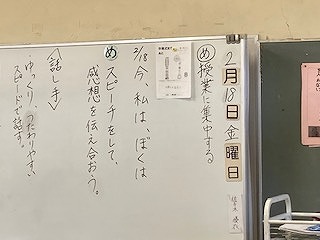 2月18日金曜日
め 授業に集中する
2/18 今、私は、ぼくは
め スピーチをして、
感想を伝え合おう。
〈話し手〉
ゆっくり、つたわりやすい
スピードで話す。